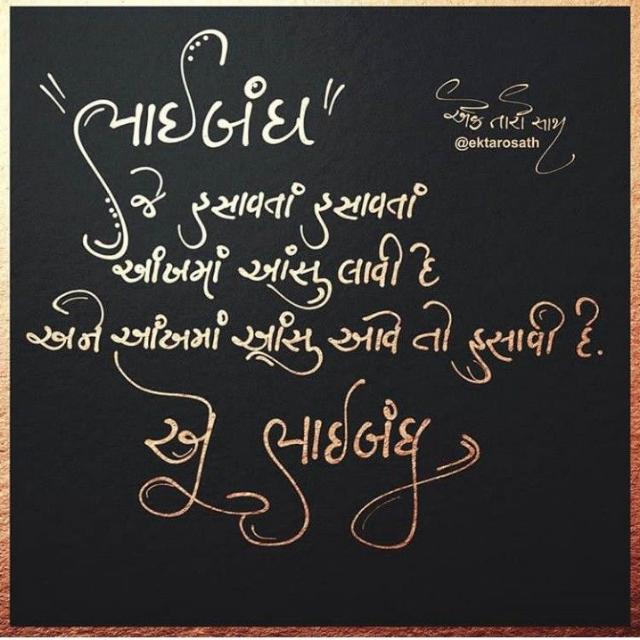 "ભાઈબંધ"
એક તારો સાથ
@ektarosath
જે હસાવતાં હસાવતાં
આંખમાં આંસુ લાવી દે
અને આંખમાં આંસુ આવે તો હસાવી દે.
એ ભાઈબંધ